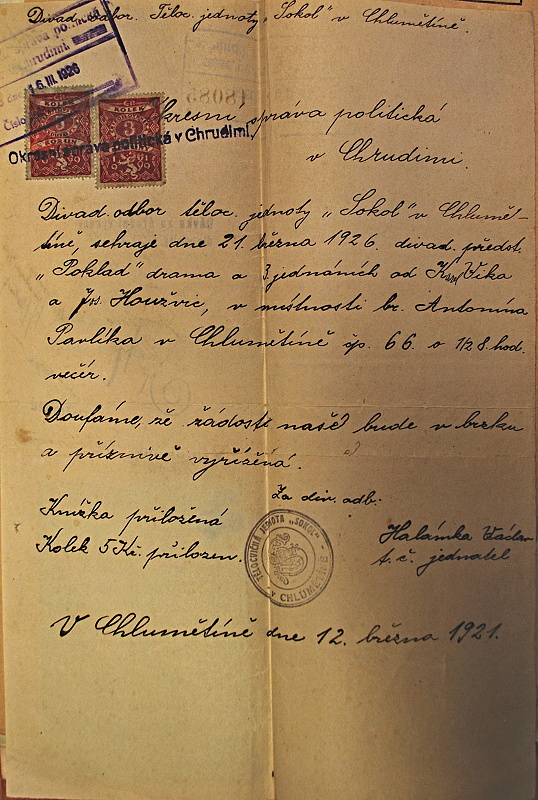 Divad. odbor. Těloc. jednoty „Sokol" v Chlumětíně.
16. III. 1926
Číslo
18085
KOLEK KOLEK
3
1919
Okresní správa politická v Chrudimi,
Okresní správa politická
v Chrudimi.
Divad. odbor těloc. jednoty „Sokol" v Chlumě-
tíně, sehraje dne 21. března 1926. divad. předst.
„Poklad" drama a 3. jednáních od Vika
a Jos. Houžvic, v místnosti br. Antonína
Pavlíka v Chlumětíně čp. 66. o 1/2 8. hod.
večér.
Doufáme, že žádosti naše bude v brzku
a příznivě vyřížéná.
Za div. odb:
Knížka přiložéná
Kolek 5 Kč. přiložen.
Halámka Václav
t. č. jednatel
TĚLOCVIČNÁ JEDNOTA „SOKOL"
V CHLUMĚTÍNĚ
V Chlumětíně dne 12. března 1921.